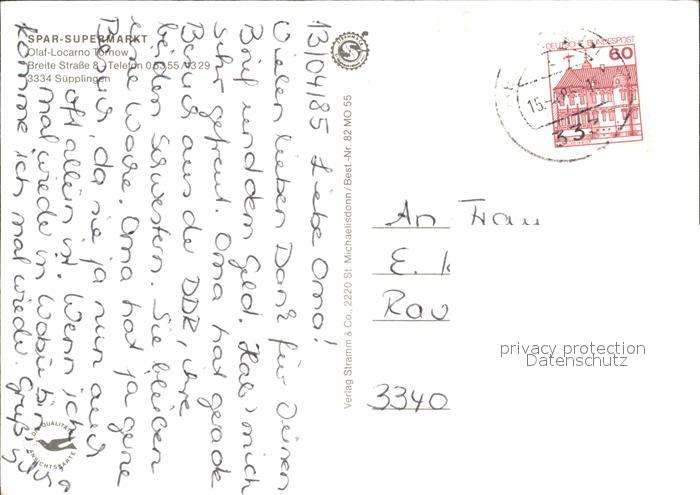 SPAR-SUPERMARKT
Olaf-Locarno Tornow
Breite Straße 8 · Telefon 05355/1329
3334 Süpplingen
13/04/85 Liebe Oma!
Vielen lieben Dank für Deinen
Brief und dem Geld. Hab mich
sehr gefreut. Oma hat gerade
Besuch aus der DDR, ihre
beiden Schwestern. Sie bleiben
eine Woche. Oma hat ja gerne
Besuch, da sie ja nun auch
oft allein ist. Wenn ich
mal wieder in bin
komme ich mal wieder. Gruß
Verlag Stramm & Co., 2220 St. Michaelisdonn/Best.-Nr. 82 MO 55
QUALITÄTS
ANSICHTSKARTE
DEUTSCHE BUNDESPOST
60
15.-4.85
An Frau
E. K
Rau
3340
privacy protection
Datenschutz